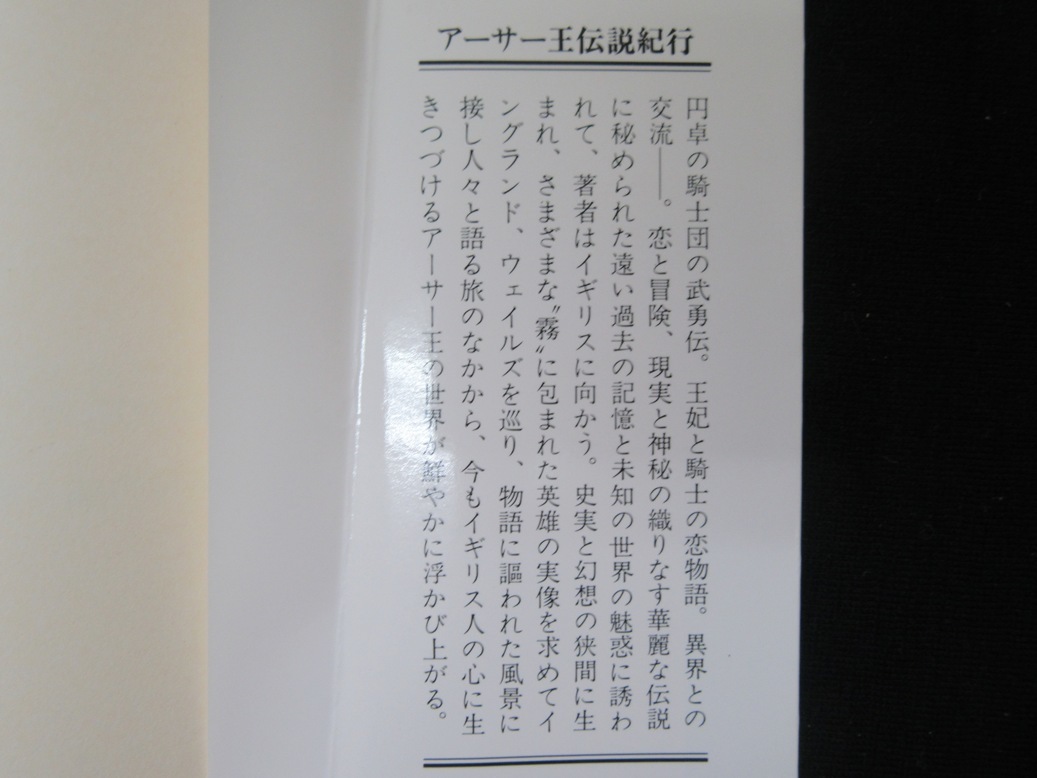 アーサー王伝説紀行
円卓の騎士団の武勇伝。王妃と騎士の恋物語。異界との
交流――。恋と冒険、現実と神秘の織りなす華麗な伝説
に秘められた遠い過去の記憶と未知の世界の魅惑に誘わ
れて、著者はイギリスに向かう。史実と幻想の狭間に生
まれ、さまざまな〝霧〟に包まれた英雄の実像を求めてイ
ングランド、ウェイルズを巡り、物語に謳われた風景に
接し人々と語る旅のなかから、今もイギリス人の心に生
きつづけるアーサー王の世界が鮮やかに浮かび上がる。